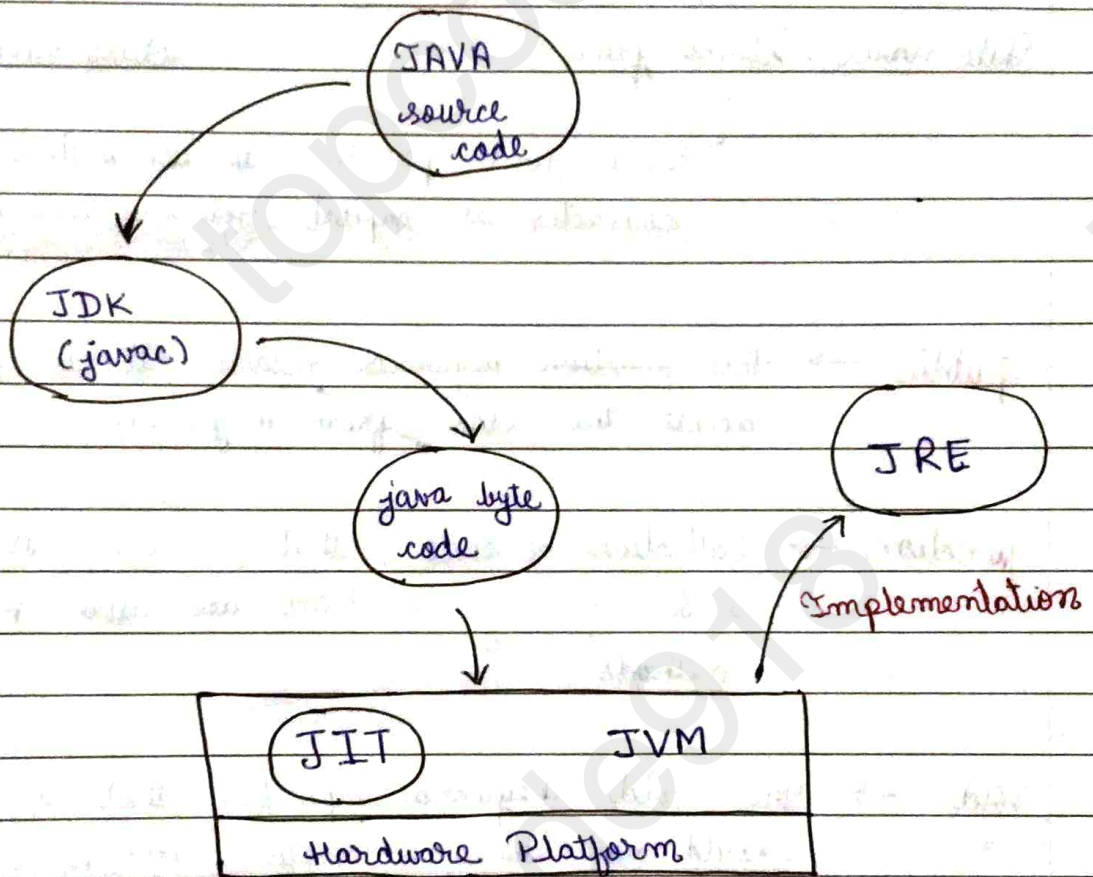 JAVA
source
code
JDK
(javac)
java byte
code
JRE
Implementation
JIT JVM
Hardware Platform